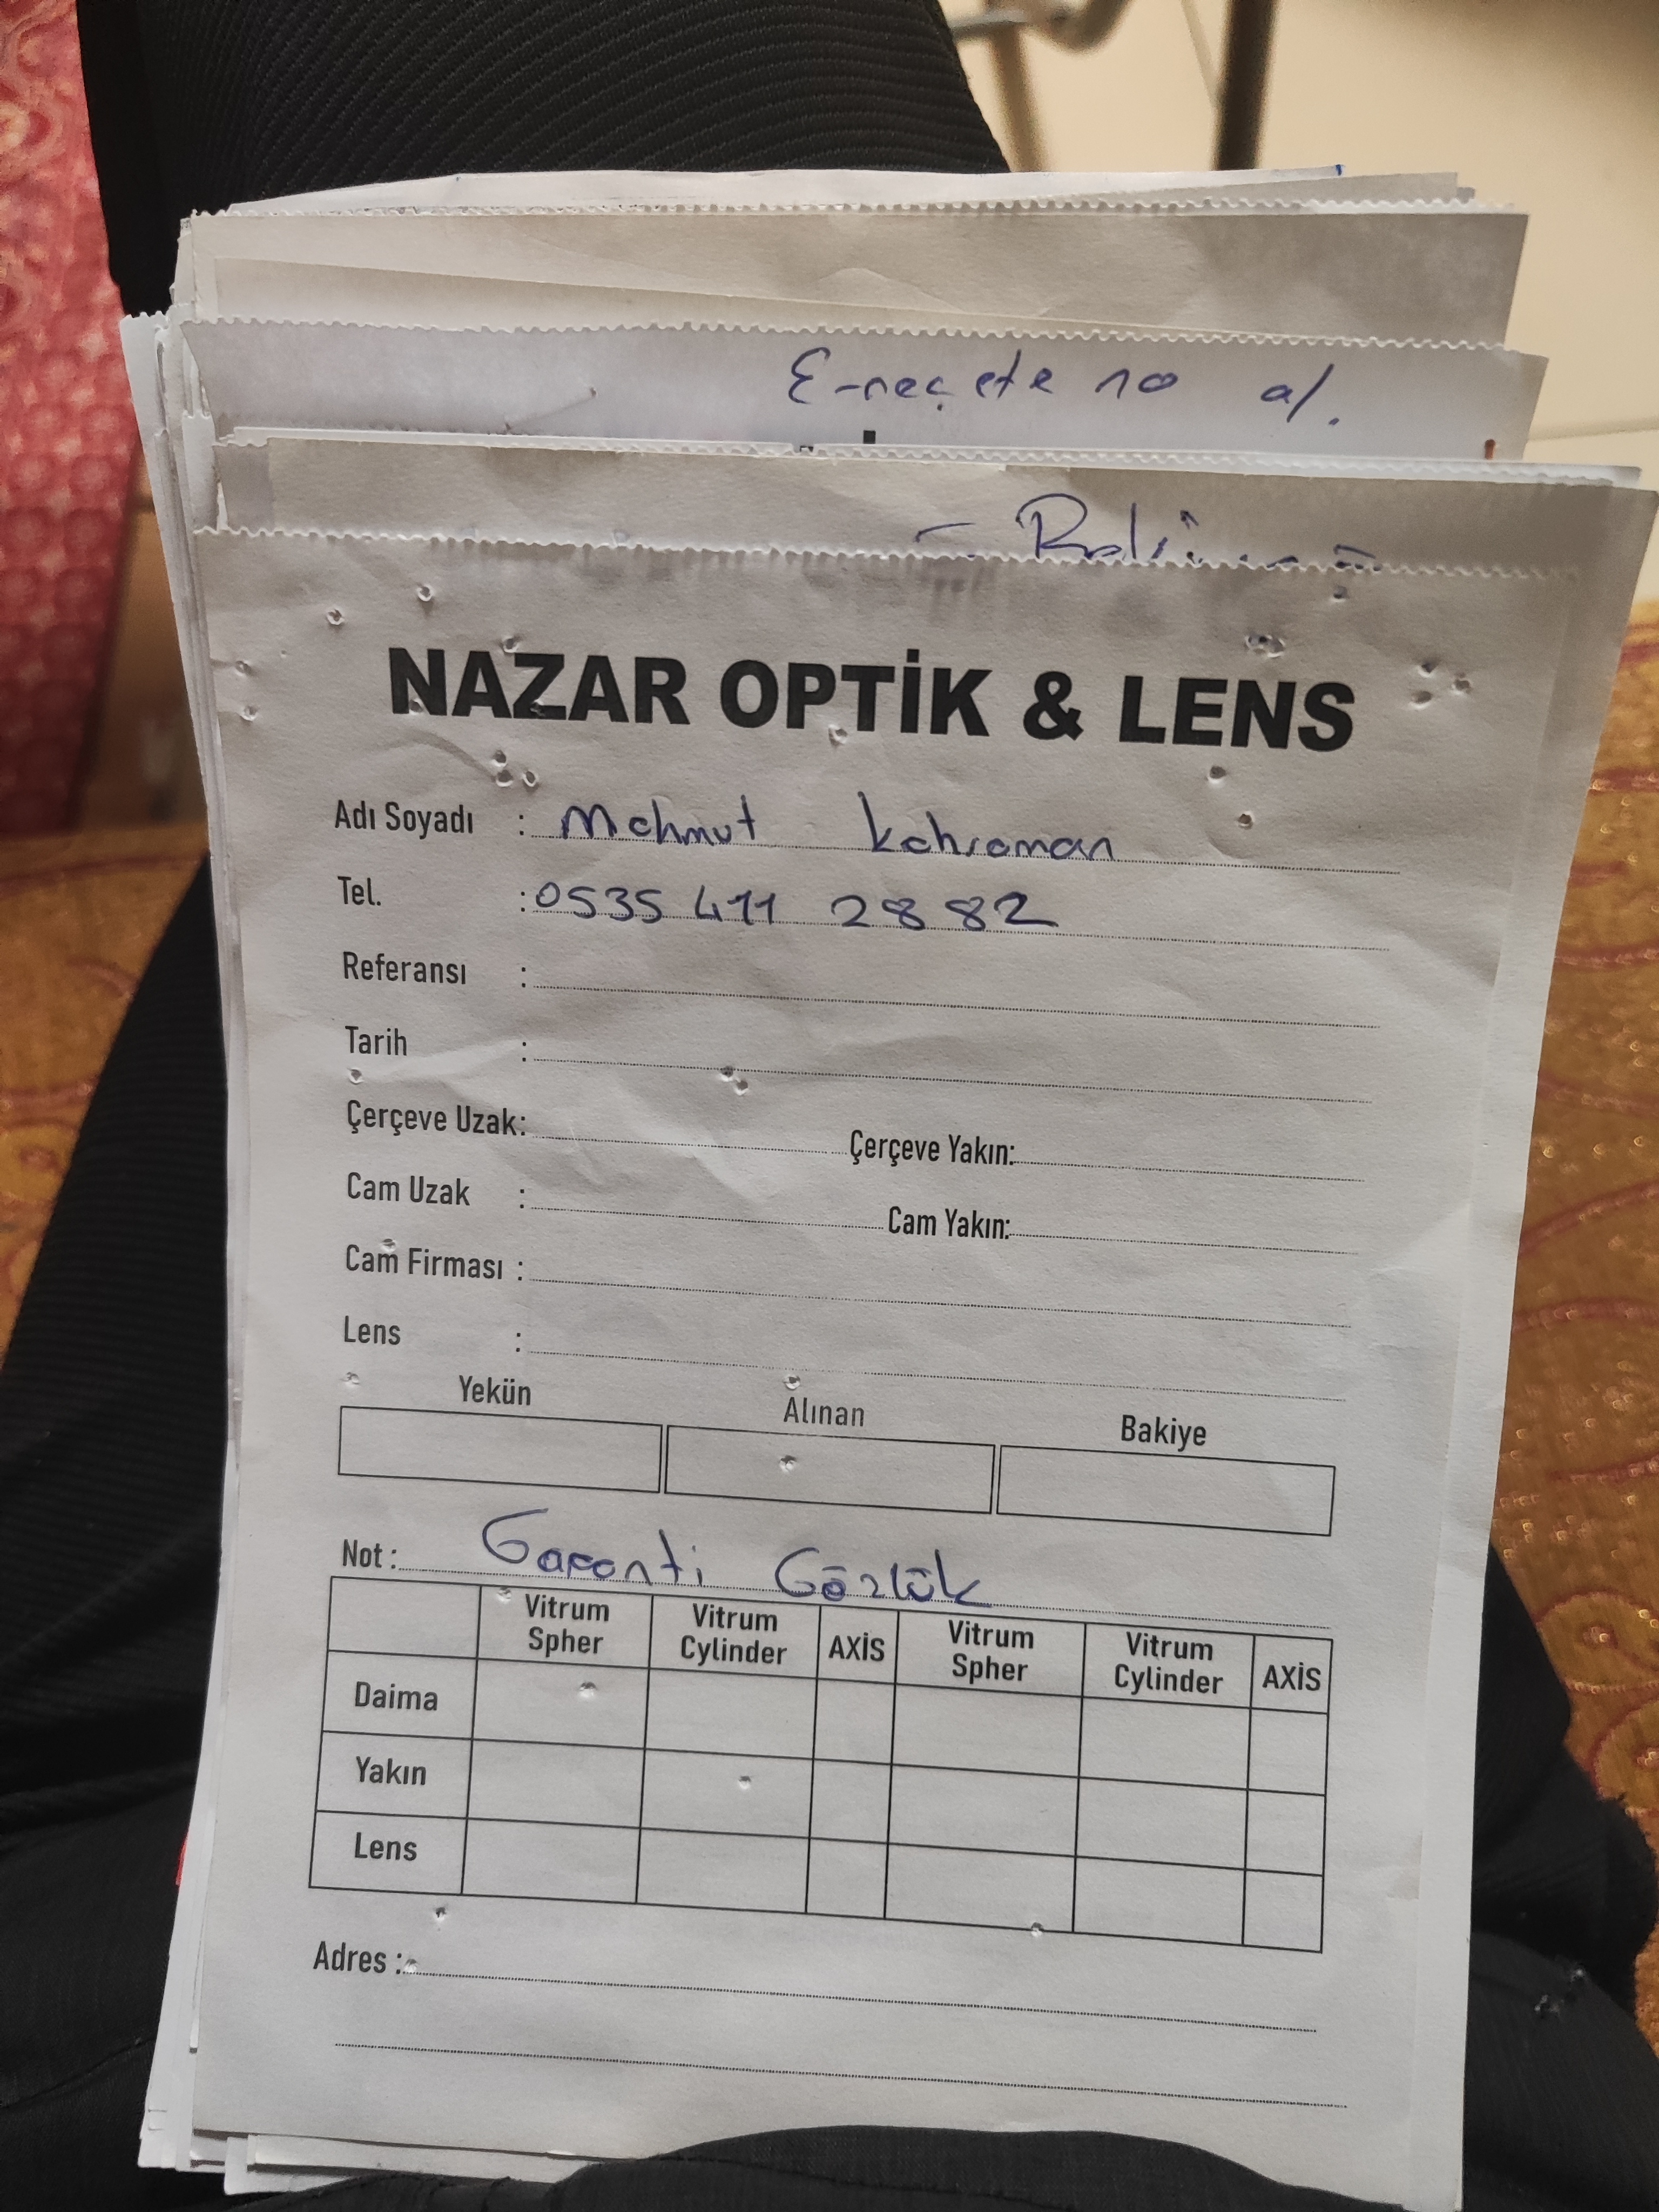 E-reçete no al.
NAZAR OPTİK & LENS
Adı Soyadı : Mahmut Kahraman
Tel. : 0535 411 2882
Referansı :
Tarih :
Çerçeve Uzak: Çerçeve Yakın:
Cam Uzak : Cam Yakın:
Cam Firması :
Lens :
Yekün Alınan Bakiye
Not : Garanti Gözlük
Vitrum Spher Vitrum Cylinder AXİS Vitrum Spher Vitrum Cylinder AXİS
Daima
Yakın
Lens
Adres :